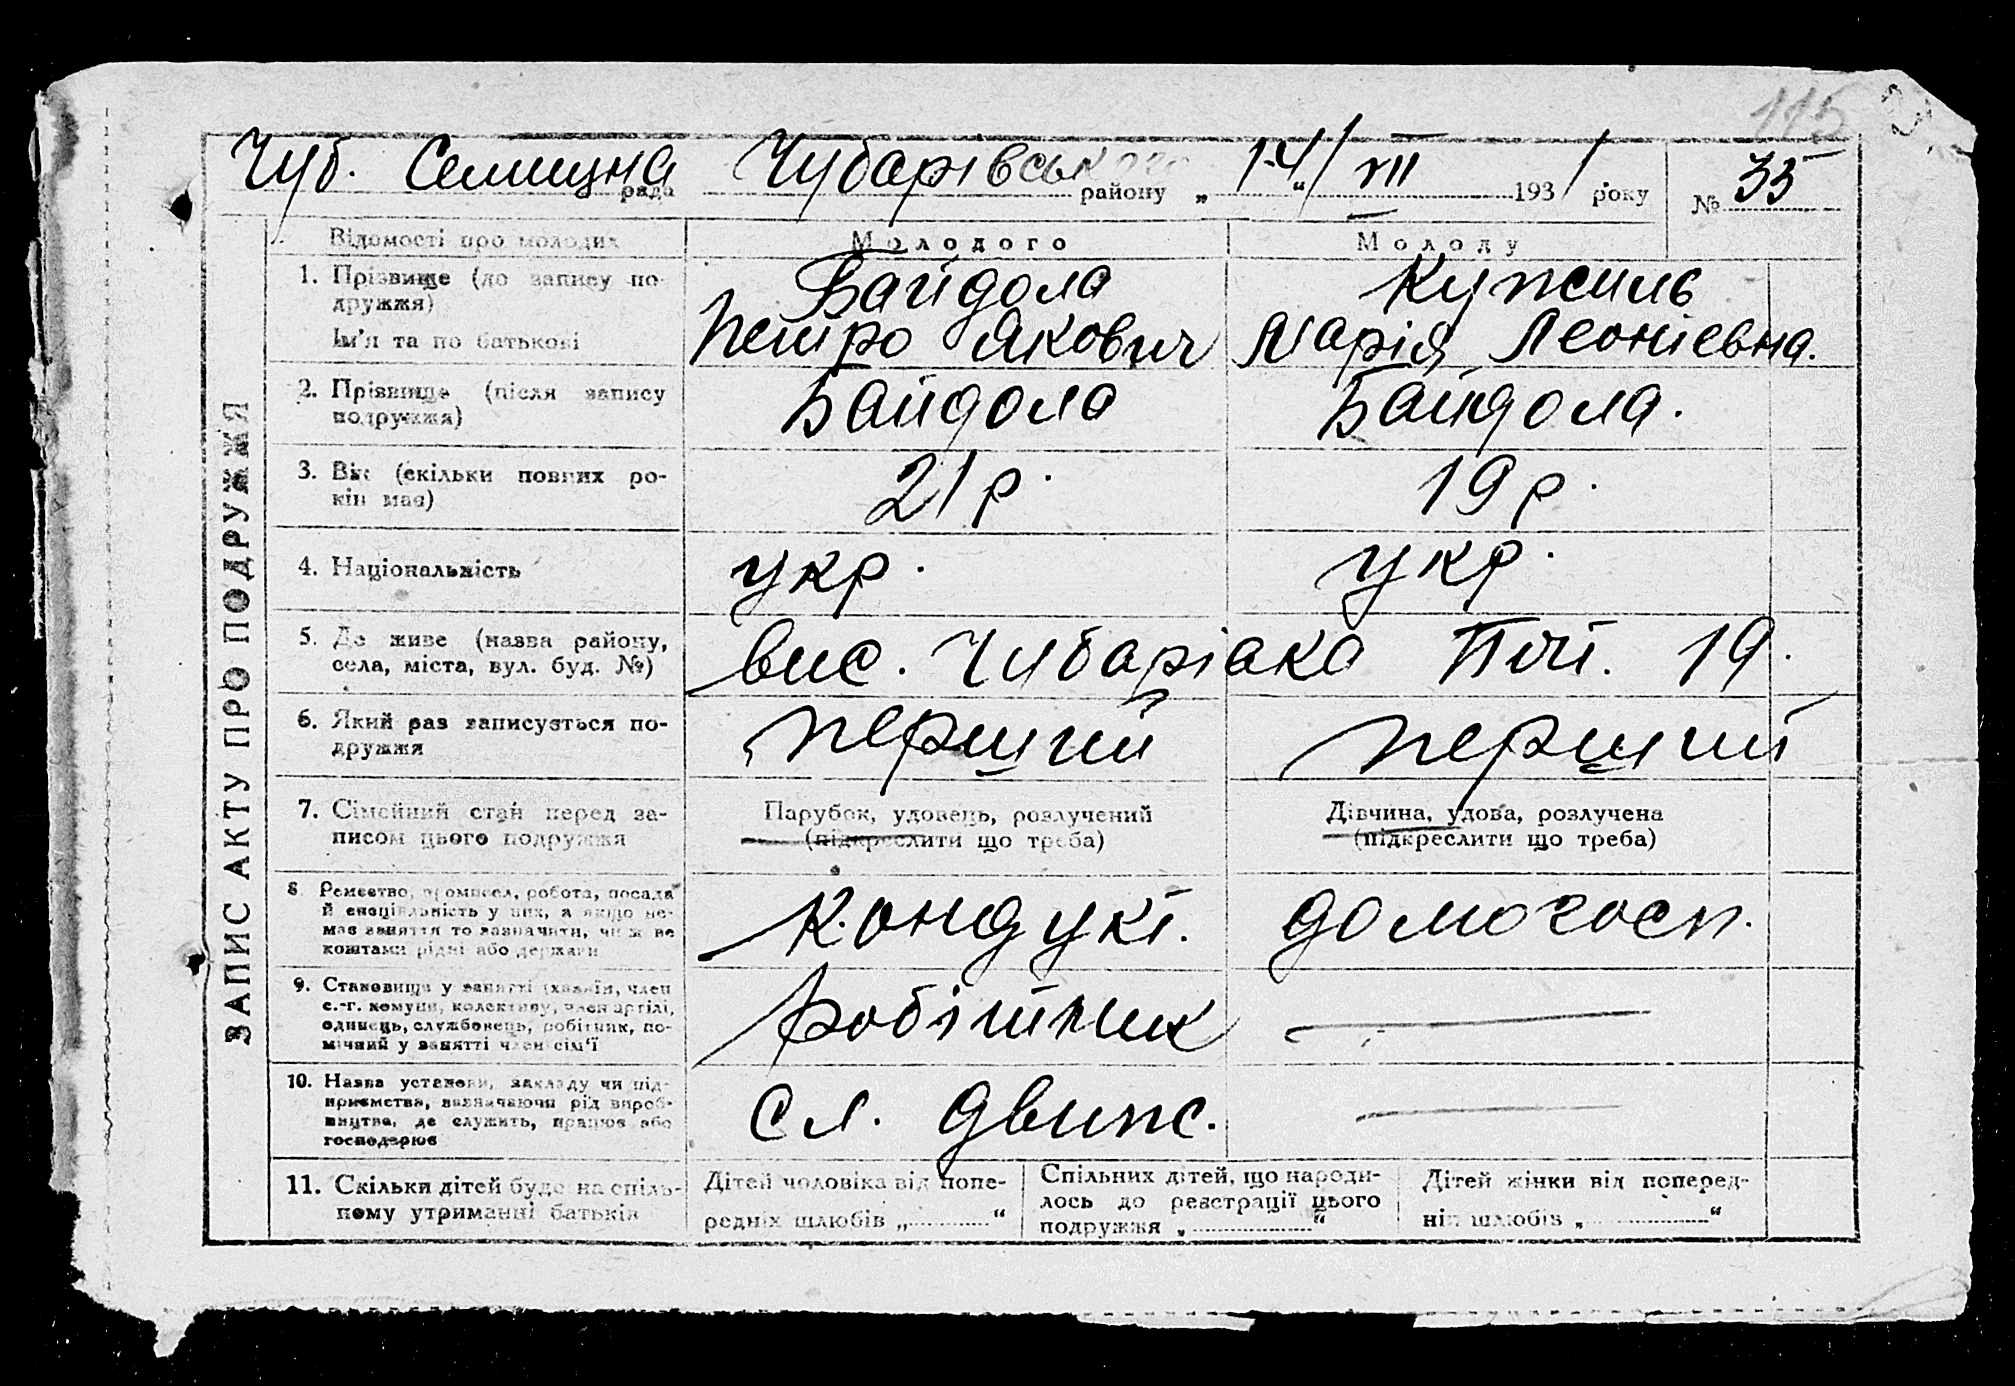 115
Чуб. Селищна рада Чубарівського району „ 14 “ / VII 1931 року № 35
ЗАПИС АКТУ ПРО ПОДРУЖЖЯ
Відомості про молодих Молодого Молоду
1. Прізвище (до запису по- Байдола Кужиль
дружжя)
Ім'я та по батькові Петро Якович Марія Леонієвна.
2. Прізвище (після запису Байдола Байдола.
подружжя)
3. Вік (скільки повних ро- 21 р. 19 р.
ків має)
4. Національність укр. укр.
5. Де живе (назва району, вис. Чубарівка 19.
села, міста, вул. буд. №)
6. Який раз записується по- перший перший
дружжя
7. Сімейний стан перед за- Парубок, удовець, розлучений Дівчина, удова, розлучена
писом цього подружжя (підкреслити що треба) (підкреслити що треба)
8. Ремество, промисел, робота, посада Кондукт. домогосп.
й спеціяльність у них, а якщо не-
має заняття то зазначити, чи ж ве
коштами рідні або держави
9. Становище у занятті (хазяїн, член робітник —
с.-г. комуни, колективу, член артілі,
одинець, службовець, робітник, по-
мічний у занятті член сім'ї
10. Назва установи, закладу чи під- сл. движ. —
приємства, визначаючи рід вироб-
ництва, де служить, працює або
господарює
11. Скільки дітей буде на спіль- Дітей чоловіка від попе- Спільних дітей, що народи- Дітей жінки від поперед-
ному утриманні батьків редніх шлюбів „ “ лось до реєстрації цього ніх шлюбів „ “
подружжя „ “